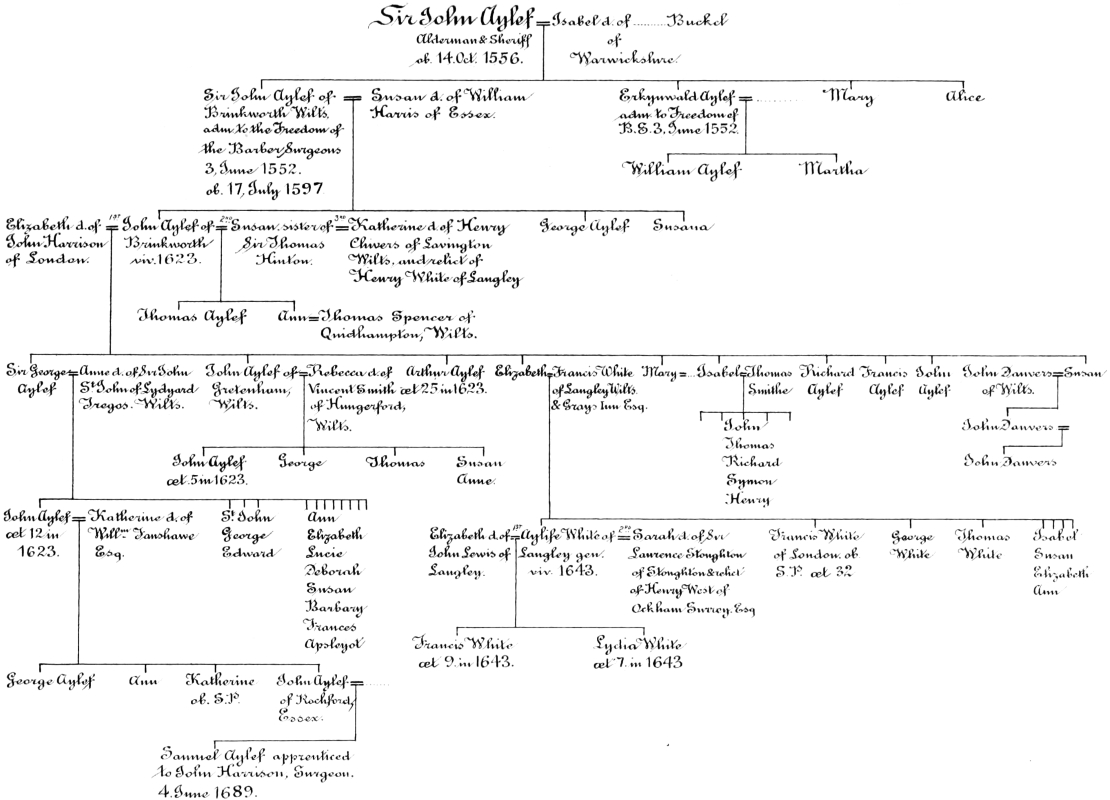 Sir John Aylef = Isabel d. of ........ Buckel
Alderman & Sheriff
of
ob. 14. Oct. 1556.
Warwickshire
Sir John Aylef of
Brinkworth Wilts.
adm to the Freedom of
the Barber Surgeons
3, June 1552.
ob. 17, July 1597
Susan d. of William
Harris of Essex.
Erkynwald Aylef
adm to Freedom of
B.S. 3, June 1552.
Mary
Alice
William Aylef
Martha
Elizabeth d. of
John Harrison
of London.
1st
John Aylef of
Brinkworth
viv. 1623.
2nd
Susan. sister of
Sir Thomas
Hinton.
3rd
Katherine d. of Henry
Chivers of Lavington
Wilts, and relict of
Henry White of Langley
George Aylef
Susana
Thomas Aylef
Ann = Thomas Spencer of
Quidhampton, Wilts.
Sir George
Aylef
Anne d. of Sir John
St John of Lydyard
Tregos. Wilts.
John Aylef of
Gretenham,
Wilts.
Rebecca d. of
Vincent Smith
of Hungerford,
Wilts.
Arthur Aylef
æt 25 in 1623.
Elizabeth = Francis White
of Langley Wilts.
& Grays Inn Esq.
Mary = ...
Isabel = Thomas
Smithe
Richard
Aylef
Francis
Aylef
John
Aylef
John Danvers = Susan
of Wilts.
John
Thomas
Richard
Symon
Henry
John Danvers =
John Danvers
John Aylef
æt. 5 in 1623.
George
Thomas
Susan
Anne.
John Aylef
æt 12 in
1623.
Katherine d. of
Willm Fanshawe
Esq.
St John
George
Edward
Ann
Elizabeth
Lucie
Deborah
Susan
Barbary
Frances
Apsleyot
Elizabeth d. of
John Lewis of
Langley.
1st
Ayliffe White of
Langley gen.
viv. 1643.
2nd
Sarah d. of Sir
Lawrence Stoughton
of Stoughton & relict
of Henry West of
Ockham Surrey. Esq
Francis White
of London. ob
S.P. æt 32
George
White
Thomas
White
Isabel
Susan
Elizabeth
Ann
Francis White
æt 9. in 1643.
Lydia White
æt 7. in 1643
George Aylef
Ann
Katherine
ob. S.P.
John Aylef = ......
of Rochford,
Essex.
Samuel Aylef apprenticed
to John Harrison, Surgeon.
4. June 1689.